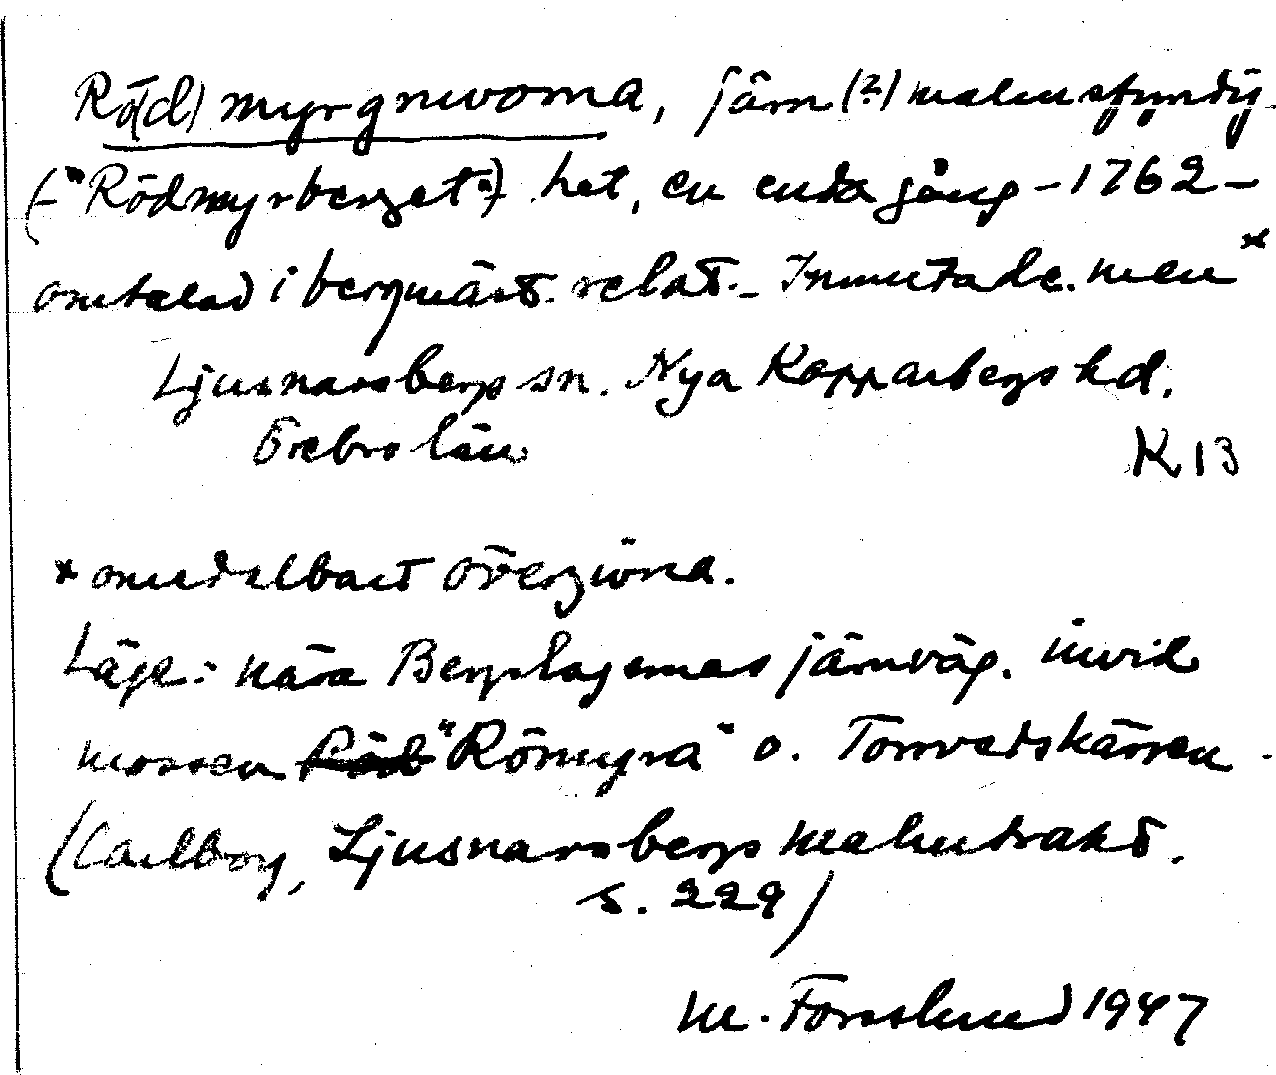 Rö(d)myrgruvorna, järn(?)malmsfyndig-
(- "Rödmyrberget") het, en enda gång - 1762 -
omtalad i bergmäst. relat. - Inmutade. men *
Ljusnarsbergs sn. Nya Kopparbergs hd.
Örebro län
K 13
* omedelbart övergivna.
Läge: nära Bergslagernas järnväg. invid
mossen "Römyra" o. Torrvedskärren.
(Carlborg, Ljusnarsbergs malmtrakt.
s. 229)
M. Forsslund 1947